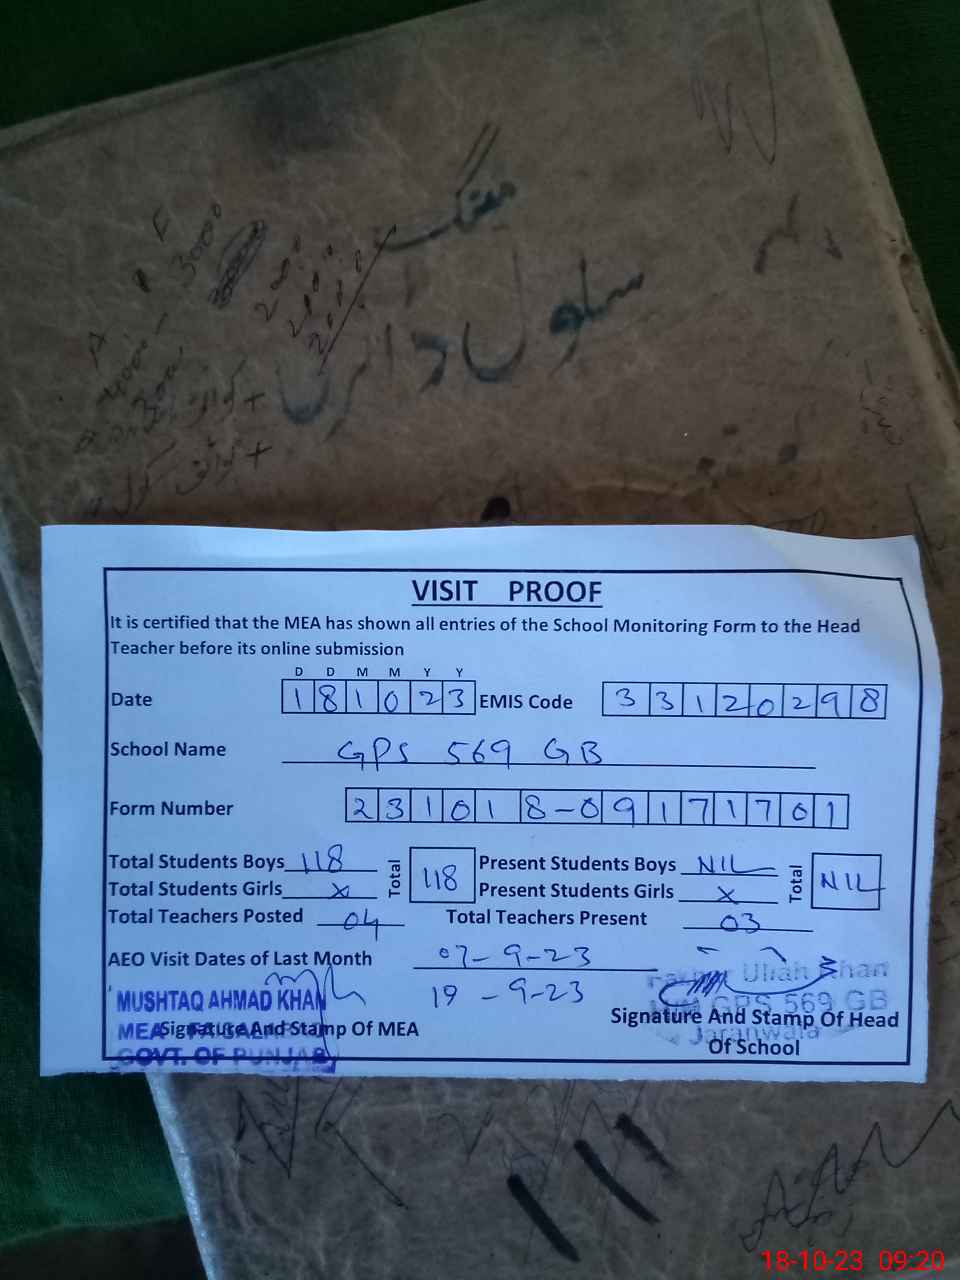 میٹنگ
سلول دائرن
F
3000
2000
2000
2000
A
4000
3000
VISIT PROOF
It is certified that the MEA has shown all entries of the School Monitoring Form to the Head
Teacher before its online submission
D D M M Y Y
Date 181023 EMIS Code 33120298
School Name GPS 569 GB
Form Number 231018-09171701
Total Students Boys 118 Total 118 Present Students Boys NIL Total NIL
Total Students Girls x Present Students Girls x
Total Teachers Posted 04 Total Teachers Present 03
AEO Visit Dates of Last Month 07-9-23
19-9-23
MUSHTAQ AHMAD KHAN
MEA FAISALABAD
GOVT. OF PUNJAB
Signature And Stamp Of MEA
Ullah Khan
GPS 569 GB
Jaranwala
Signature And Stamp Of Head
Of School
18-10-23 09:20